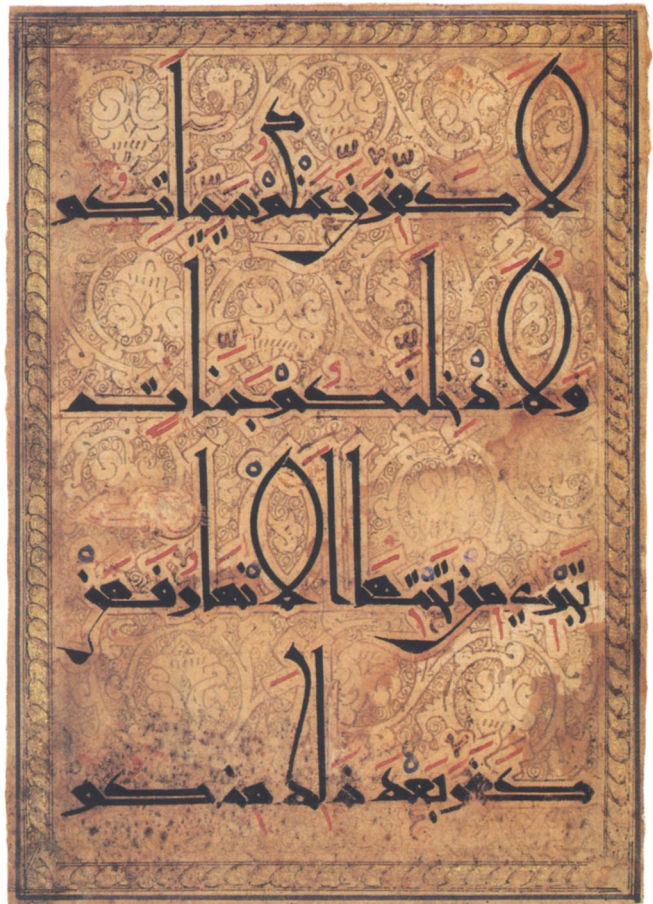 لَأُكَفِّرَنَّ عَنْكُمْ سَيِّئَاتِكُمْ
وَلَأُدْخِلَنَّكُمْ جَنَّاتٍ
تَجْرِي مِنْ تَحْتِهَا الْأَنْهَارُ فَمَنْ
كَفَرَ بَعْدَ ذَلِكَ مِنْكُمْ